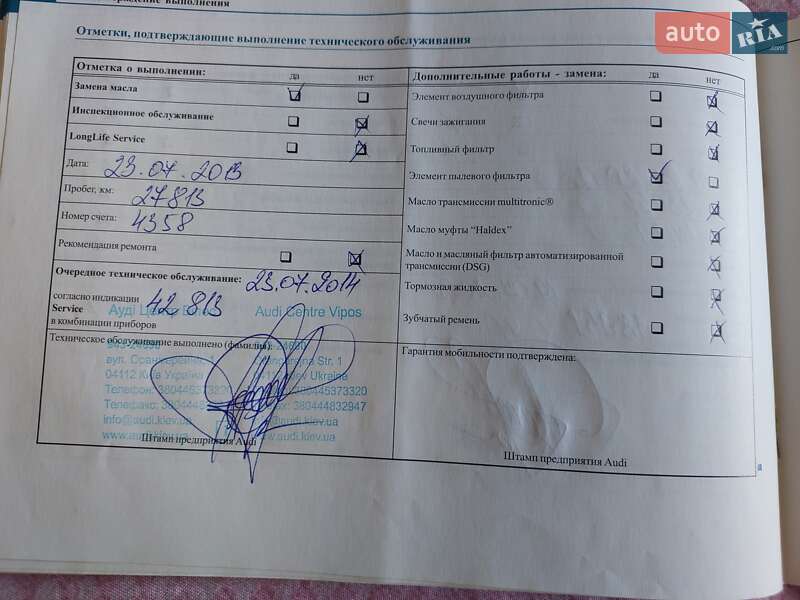 выполнения
Отметки, подтверждающие выполнение технического обслуживания
auto RIA .com
Отметка о выполнении: да нет
Замена масла
Инспекционное обслуживание
LongLife Service
Дата: 23.07.2013
Пробег, км: 27813
Номер счета: 4358
Рекомендация ремонта
Очередное техническое обслуживание: 23.07.2014
согласно индикации 42 813
Service
в комбинации приборов
Ауді Центр Audi Centre Vipos
Техническое обслуживание выполнено (фамилия):
вул. Str. 1
04112 Київ Україна Kiev Ukraine
Телефон: 380445373320
Телефакс: 380444832947
info@audi.kiev.ua @audi.kiev.ua
www.audi.kiev.ua
Штамп предприятия Audi
Дополнительные работы - замена: да нет
Элемент воздушного фильтра
Свечи зажигания
Топливный фильтр
Элемент пылевого фильтра
Масло трансмиссии multitronic®
Масло муфты “Haldex”
Масло и масляный фильтр автоматизированной
трансмиссии (DSG)
Тормозная жидкость
Зубчатый ремень
Гарантия мобильности подтверждена:
Штамп предприятия Audi